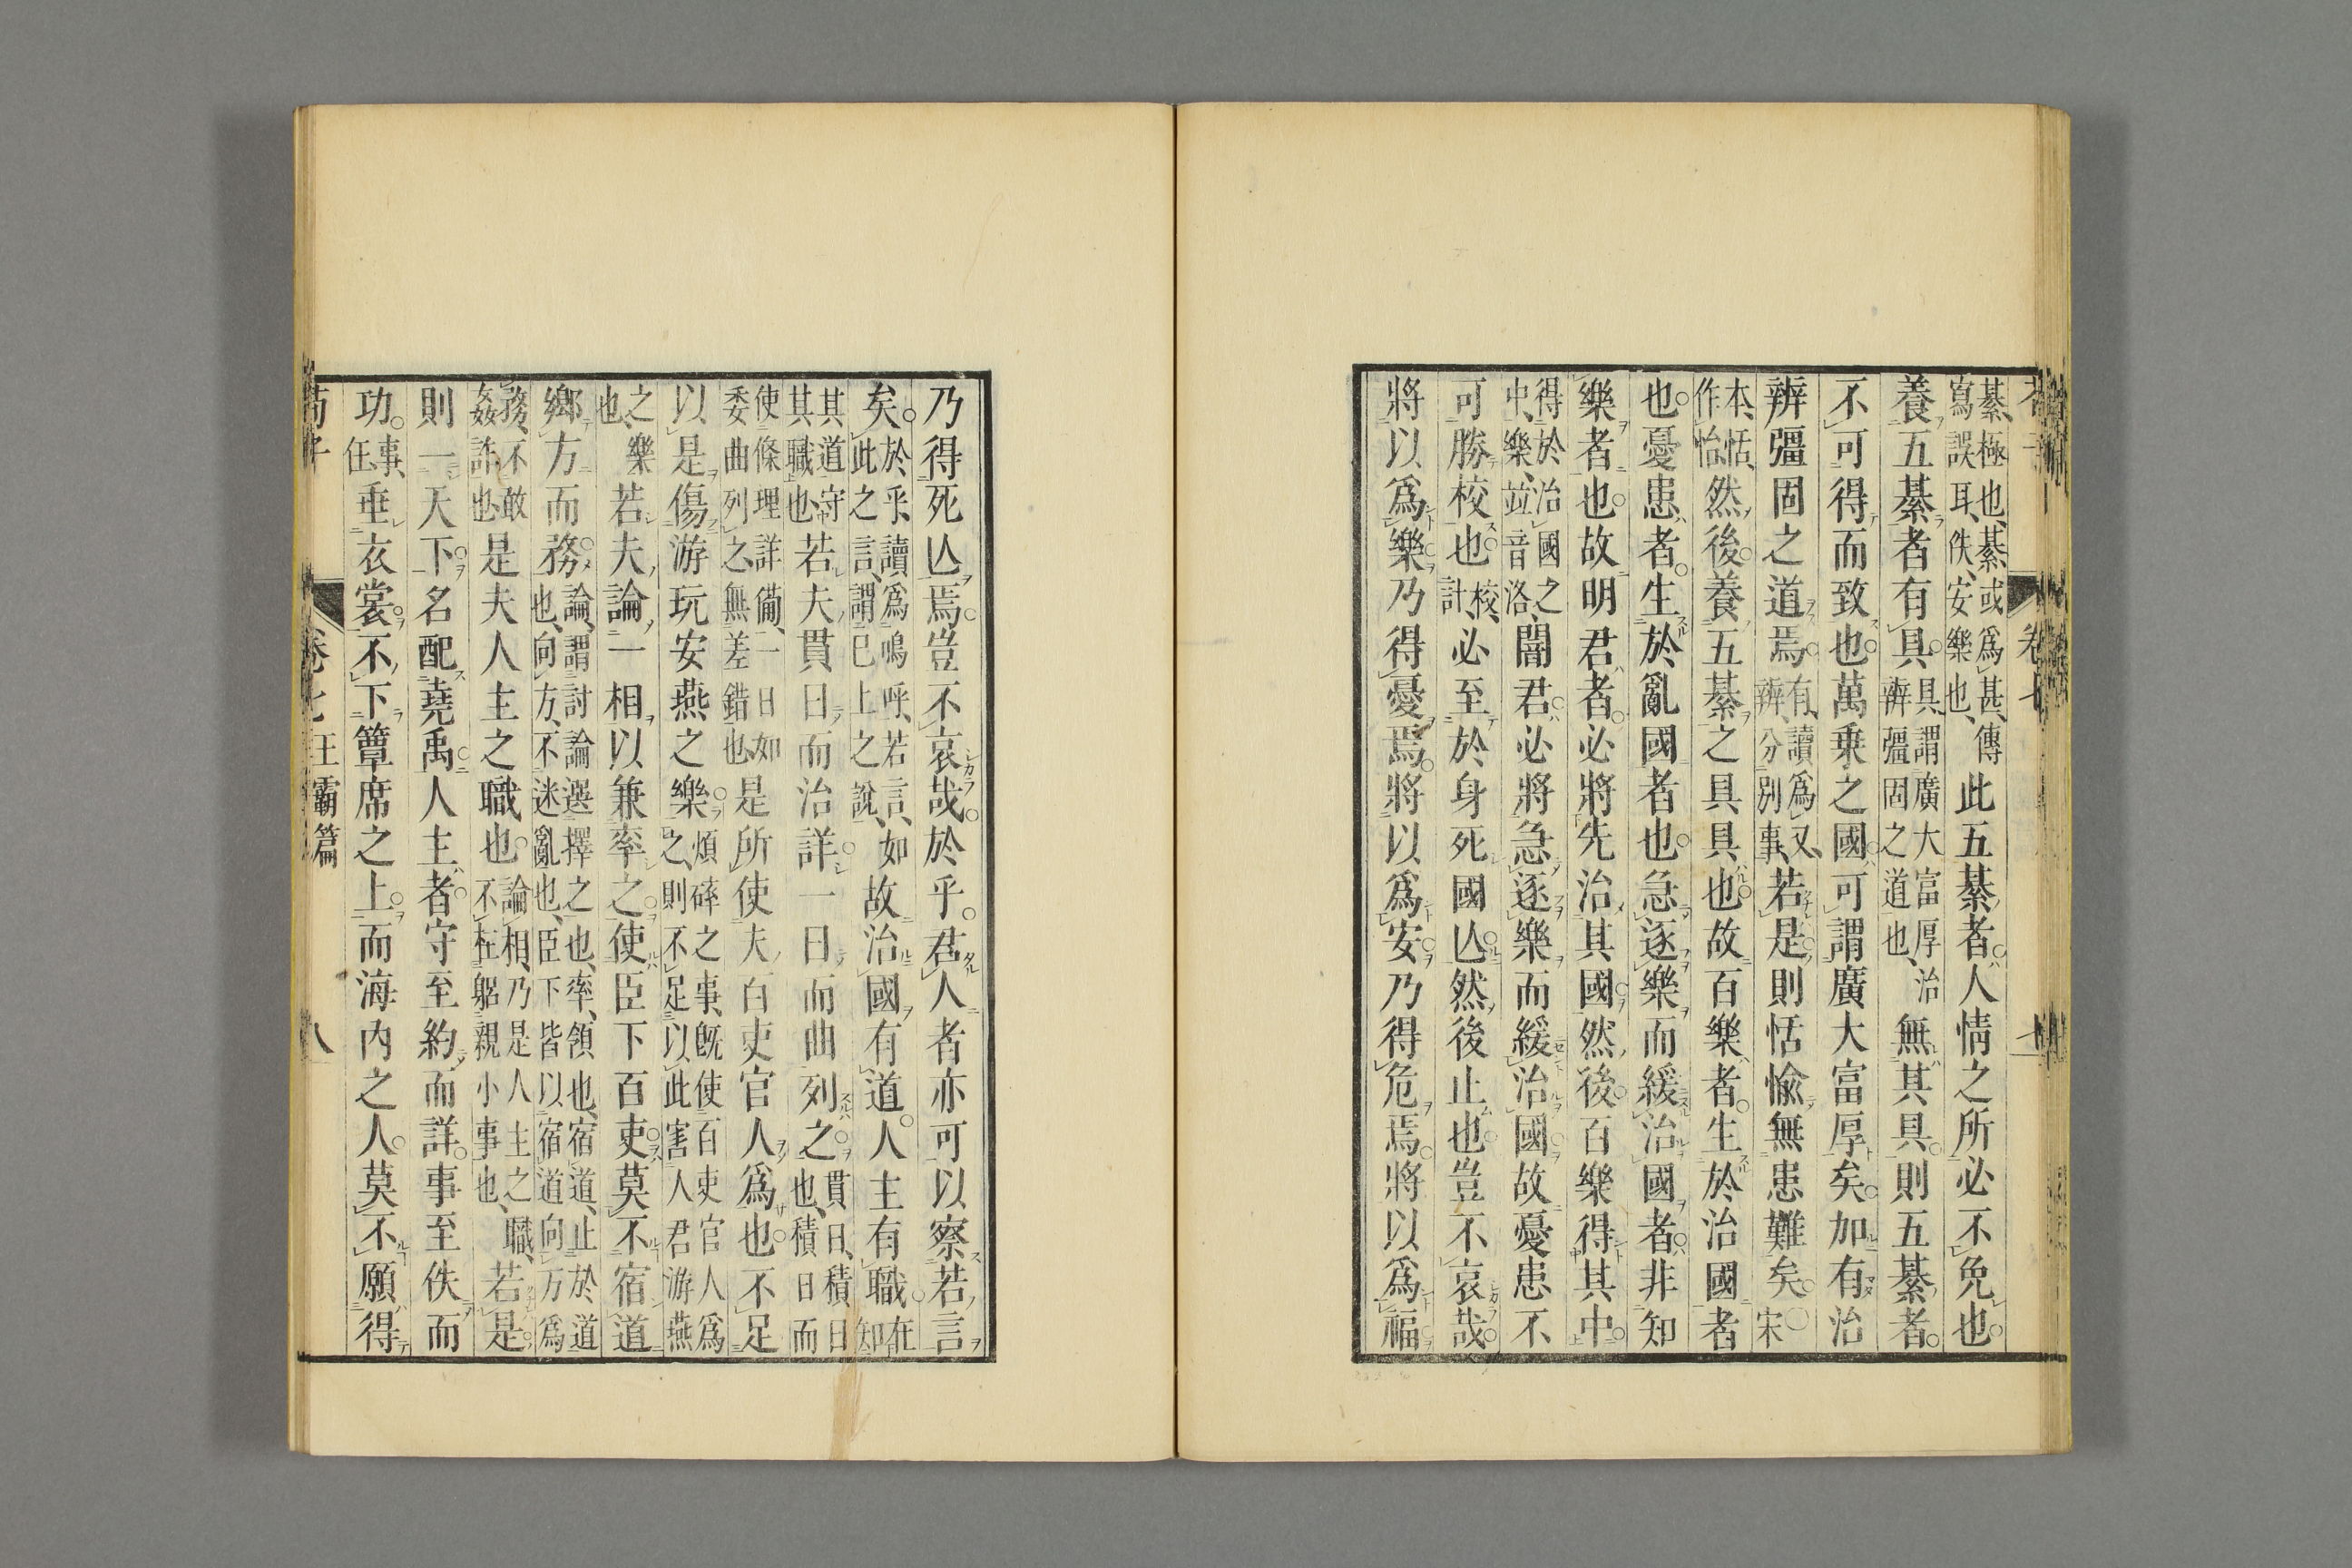 綦、極也、綦或爲甚、傳寫誤耳、佚、安樂也、此五綦者人情之所必不免也
養五綦者有具具、謂廣大富厚治辨彊固之道也、無其具則五綦者
不可得而致也萬乗之國可謂廣大富厚矣加有治
辨彊固之道焉有、讀爲又、辨、分別事、若是則恬愉無患難矣宋
本、恬、作怡、然後養五綦之具具也故百樂者生於治國者
也憂患者生於亂國者也急逐樂而緩治國者非知
樂者也故明君者必將先治其國然後百樂得其中
得於治國之中、樂、竝音洛、闇君必將急逐樂而緩治國故憂患不
可勝校也校、計、必至於身死國亾然後止也豈不哀哉
將以爲樂乃得憂焉將以爲安乃得危焉將以爲福
卷七
七
乃得死亾焉豈不哀哉於乎君人者亦可以察若言
矣於、乎、讀爲嗚呼、若言、如此之言、謂已上之說、故治國有道人主有職在知
其道守其職也若夫貫日而治詳一日而曲列之貫日、積日也、積日而
使條理詳備、一日如委曲列之、無差錯也是所使夫百吏官人爲也不足
以是傷游玩安燕之樂煩碎之事、既使百吏官人爲之、則不足以、此害人君游燕
之樂也、若夫論一相以兼率之使臣下百吏莫不宿道
鄉方而務論、謂討論選擇之也、率、領也、宿道、止於道也、向方、不迷亂也、臣下皆以宿道向方爲
務、不敢姦詐也是夫人主之職也論相、乃是人主之職、不在躬親小事也、若是
則一天下名配堯禹人主者守至約而詳事至佚而
功事、任、垂衣裳不下簟席之上而海内之人莫不願得
荀子 卷七 王霸篇 八